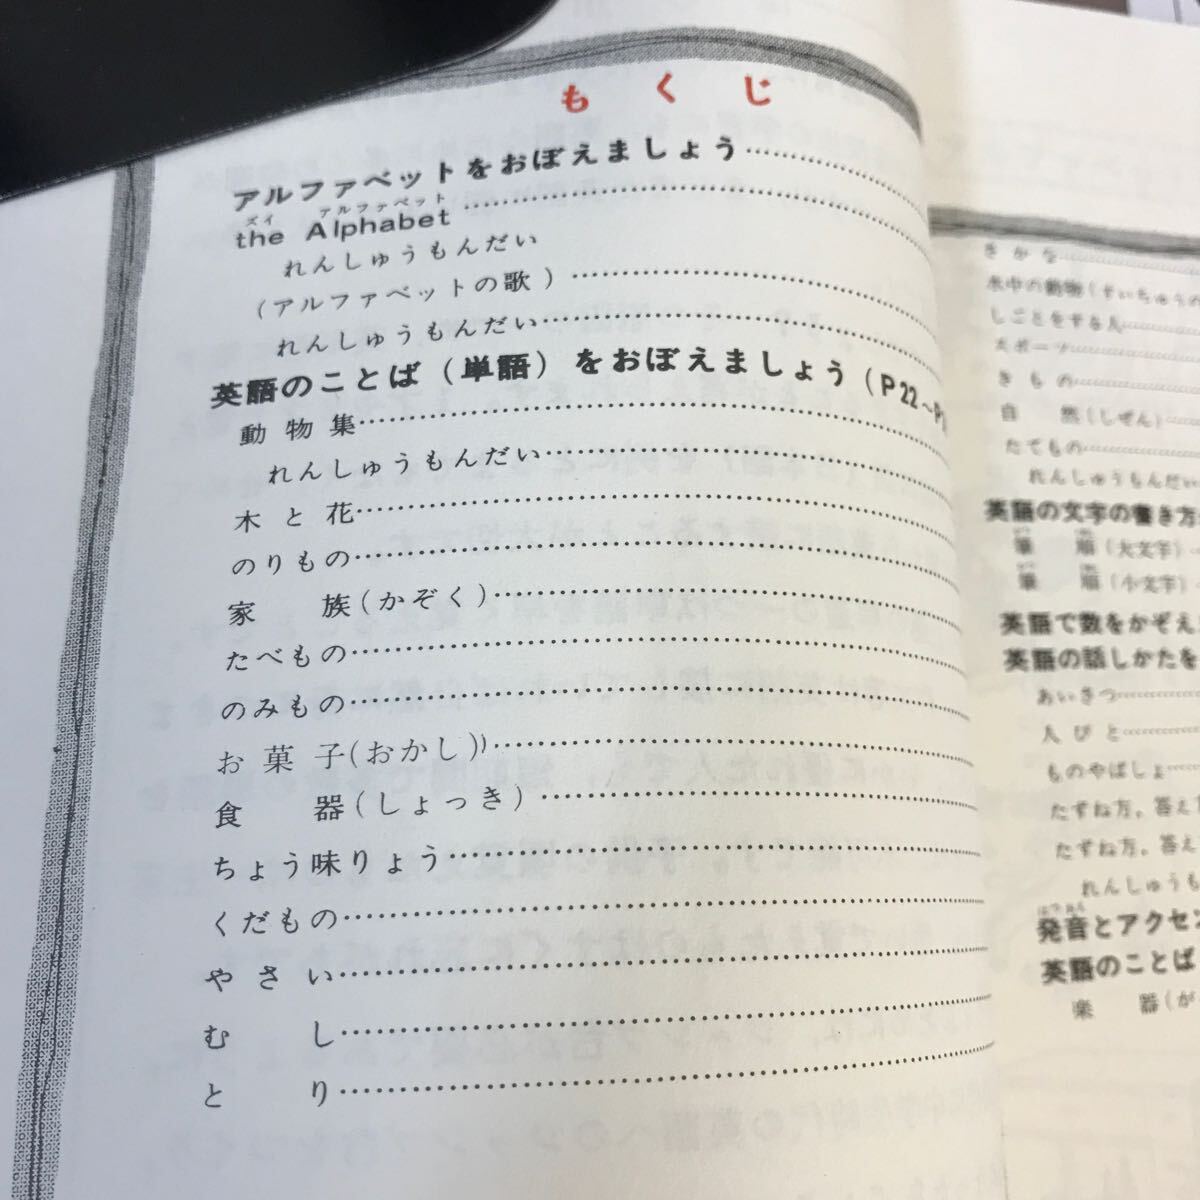 もくじ
アルファベットをおぼえましょう
ズイ アルファベット
the Alphabet
れんしゅうもんだい
(アルファベットの歌)
れんしゅうもんだい
英語のことば(単語)をおぼえましょう(P22~P
動物集
れんしゅうもんだい
木と花
のりもの
家族(かぞく)
たべもの
のみもの
お菓子(おかし))
食器(しょっき)
ちょう味りょう
くだもの
やさい
むし
とり
さかな
水中の動物(すいちゅうの
しごとをする人
スポーツ
きもの
自然(しぜん)
たてもの
れんしゅうもんだい
英語の文字の書き方
筆順(大文字)
筆順(小文字)
英語で数をかぞえ
英語の話しかたを
あいさつ
人びと
ものやばしょ
たずね方,答え
たずね方,答え
れんしゅうも
発音とアクセ
英語のことば
楽器(が